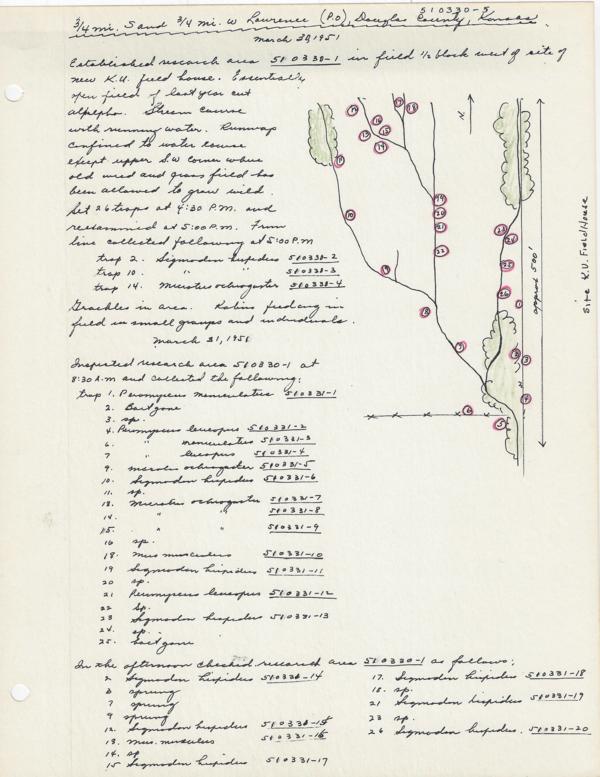 510330-5
3/4 mi. S and 3/4 mi. W Lawrence (P.O) Douglas County, Kansas.
March 30, 1951
Established research area 510330-1 in field 1/2 block west of site of
new K.U. field house. Essentially
open field of last year cut
alfalfa. Stream course
with running water. Runways
confined to water course
except upper S.W corner where
old weed and grass field has
been allowed to grow wild.
Set 26 traps at 4:30 P.M. and
reexamined at 5:00 P.M. From
line collected following at 5:00 P.M
trap 2. Sigmodon hispidus 510330-2
trap 10. " " 510330-3
trap 14. Microtus ochrogaster 510330-4
Grackles in area. Robins feeding in
field in small groups and individuals.
March 31, 1951
Inspected research area 510330-1 at
8:30 A.M and collected the following:
trap 1. Peromyscus maniculatus 510331-1
2. Bait gone
3. sp.
4. Peromyscus leucopus 510331-2
6. " maniculatus 510331-3
7 " leucopus 510331-4
9. microtus ochrogaster 510331-5
10. Sigmodon hispidus 510331-6
11. sp.
13. Microtus ochrogaster 510331-7
14. " " 510331-8
15. " " 510331-9
16 sp.
18. Mus musculus 510331-10
19 Sigmodon hispidus 510331-11
20 sp.
21 Peromyscus leucopus 510331-12
22 sp.
23 Sigmodon hispidus 510331-13
24. sp.
25. bait gone
In the afternoon checked research area 510330-1 as follows:
2 Sigmodon hispidus 510331-14
6 sprung
7 sprung
9 sprung
12. Sigmodon hispidus 510331-15
13. Mus. musculus 510331-16
14. sp
15 Sigmodon hispidus 510331-17
17. Sigmodon hispidus 510331-18
18. sp.
21 Sigmodon hispidus 510331-19
23 sp.
26 Sigmodon hispidus. 510331-20
N.
approx 500'
Site K.U. Field House